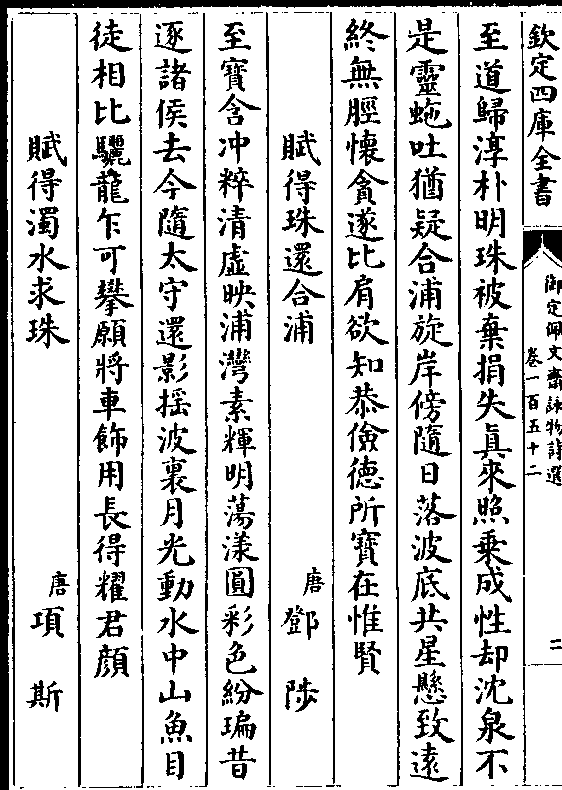 欽定四庫全書
御定佩文齋詠物詩選
卷一百五十二
二
至道歸淳朴明珠被棄捐失眞來照乗成性却沈泉不
是靈虵吐猶疑合浦旋岸傍隨日落波底共星懸致逺
終無脛懷貪遂比肩欲知恭儉德所寶在惟賢
賦得珠還合浦 唐 鄧陟
至寶含冲粹清虚映浦灣素輝明蕩漾圓彩色紛㻞昔
逐諸侯去今隨太守還影揺波裏月光動水中山魚目
徒相比驪龍乍可攀願將車飾用長得耀君顔
賦得濁水求珠 唐 項斯